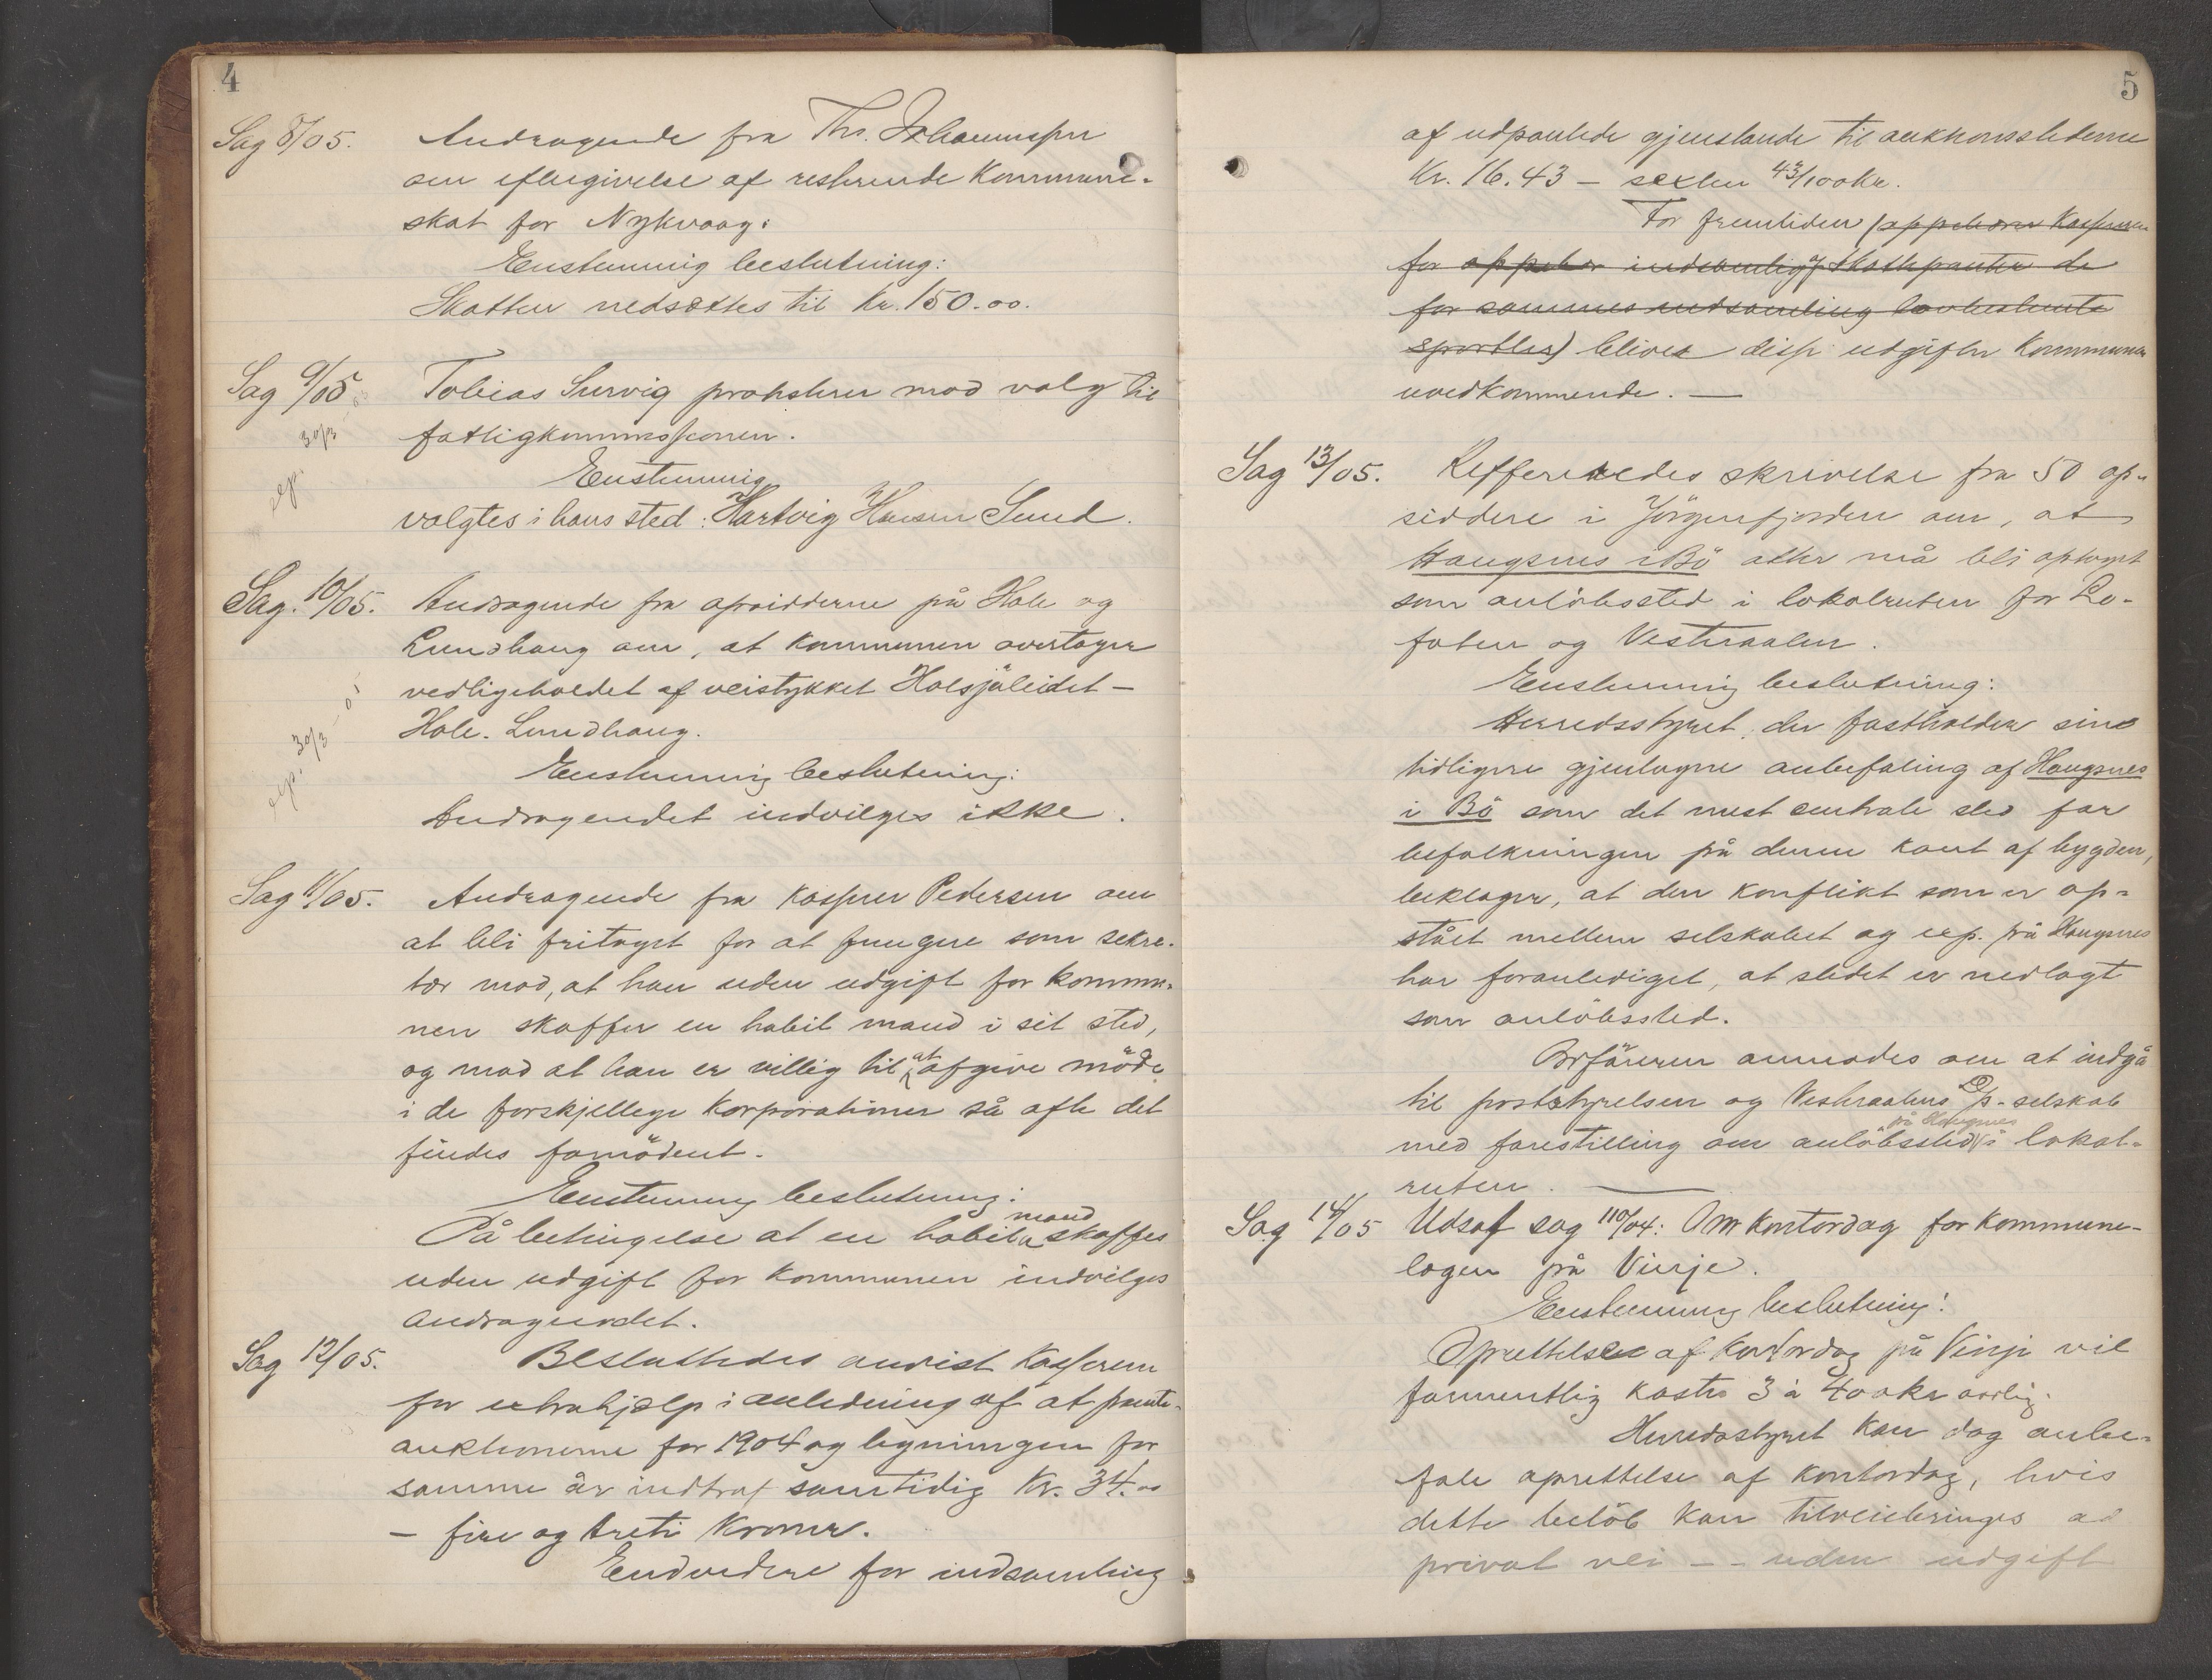 4
Sag 8/05. Andragende fra Ths. Johannessen
om eftergivelse af resterende kommune-
skat for Nykvaag:
Enstemmig beslutning:
Skatten nedsættes til Kr. 150.00.
Sag 9/05 Tobias Survig protesterer mod valg til
30/3 - 05 fattigkommissionen.
exp. Enstemmig
valgtes i hans sted: Hartvig Hansen Sund.
Sag. 10/05. Andragende fra opsidderne på Hole og
Lundhaug om, at kommunen overtager
vedligeholdet af veistykket Holsjöleidet -
exp. 30/3 - 05 Hole. Lundhaug.
Enstemmig beslutning:
Andragendet indvilges ikke.
Sag 11/05. Andragende fra kasserer Pedersen om
at bli fritaget for at fungere som sekre-
tær mod, at han uden udgift for kommu-
nen skaffer en habil mand i sit sted,
og mod at han er villig til at afgive möde
i de forskjellige korporationer så ofte det
findes fornödent.
Enstemmig beslutning:
På betingelse at en habil mand skaffes
uden udgift for kommunen indvilges
andragendet.
Sag 12/05. Besluttedes anvist kassereren
for extrahjælp i anledning af at pante-
auktionerne for 1904 og ligningen for
samme år indtraf samtidig Kr. 34.00
- fire og treti kroner.
Endvidere for indsamling
5
af udpantede gjenstande til auktionsstederne
Kr. 16.43 - sexten 43/100 kr.
For fremtiden (oppebærer kassereren
for oppebør indsamling af skattepanter de
for sammes indsamling lovbestemte
sportler) bliver disse udgifter kommunen
uvedkommende. —
Sag 13/05. Refferertedes skrivelse fra 50 op-
siddere i Jörgenfjorden om, at
Haugsnes i Bö atter må bli optaget
som anlöbssted i lokalruten for Lo-
foten og Vesteraalen.
Enstemmig beslutning:
Herredsstyret, der fastholder sine
tidligere gjentagne anbefaling af Haugsnes
i Bö som det mest centrale sted for
befolkningen på denne kant af bygden,
beklager, at den konflikt som er op-
stået mellem selskabet og exp. på Haugsnes
har foranlediget, at stedet er nedlagt
som anlöbssted.
Ordföreren anmodes om at indgå
til poststyrelsen og Vesteraalens D/p-selskab
med forestilling om anlöbssted på Haugsnes i lokal-
ruten. —
Sag 14/05 Udsat sag 110/04: Om kontordag for kommune-
lægen på Vinje.
Enstemmig beslutning:
Oprettelsen af kontordag på Vinje vil
formentlig koste 3 à 400 kr aarlig.
Herredsstyret kan dog anbe-
fale oprettelse af kontordag, hvis
dette belöb kan tilveiebringes ad
privat vei -- uden udgift